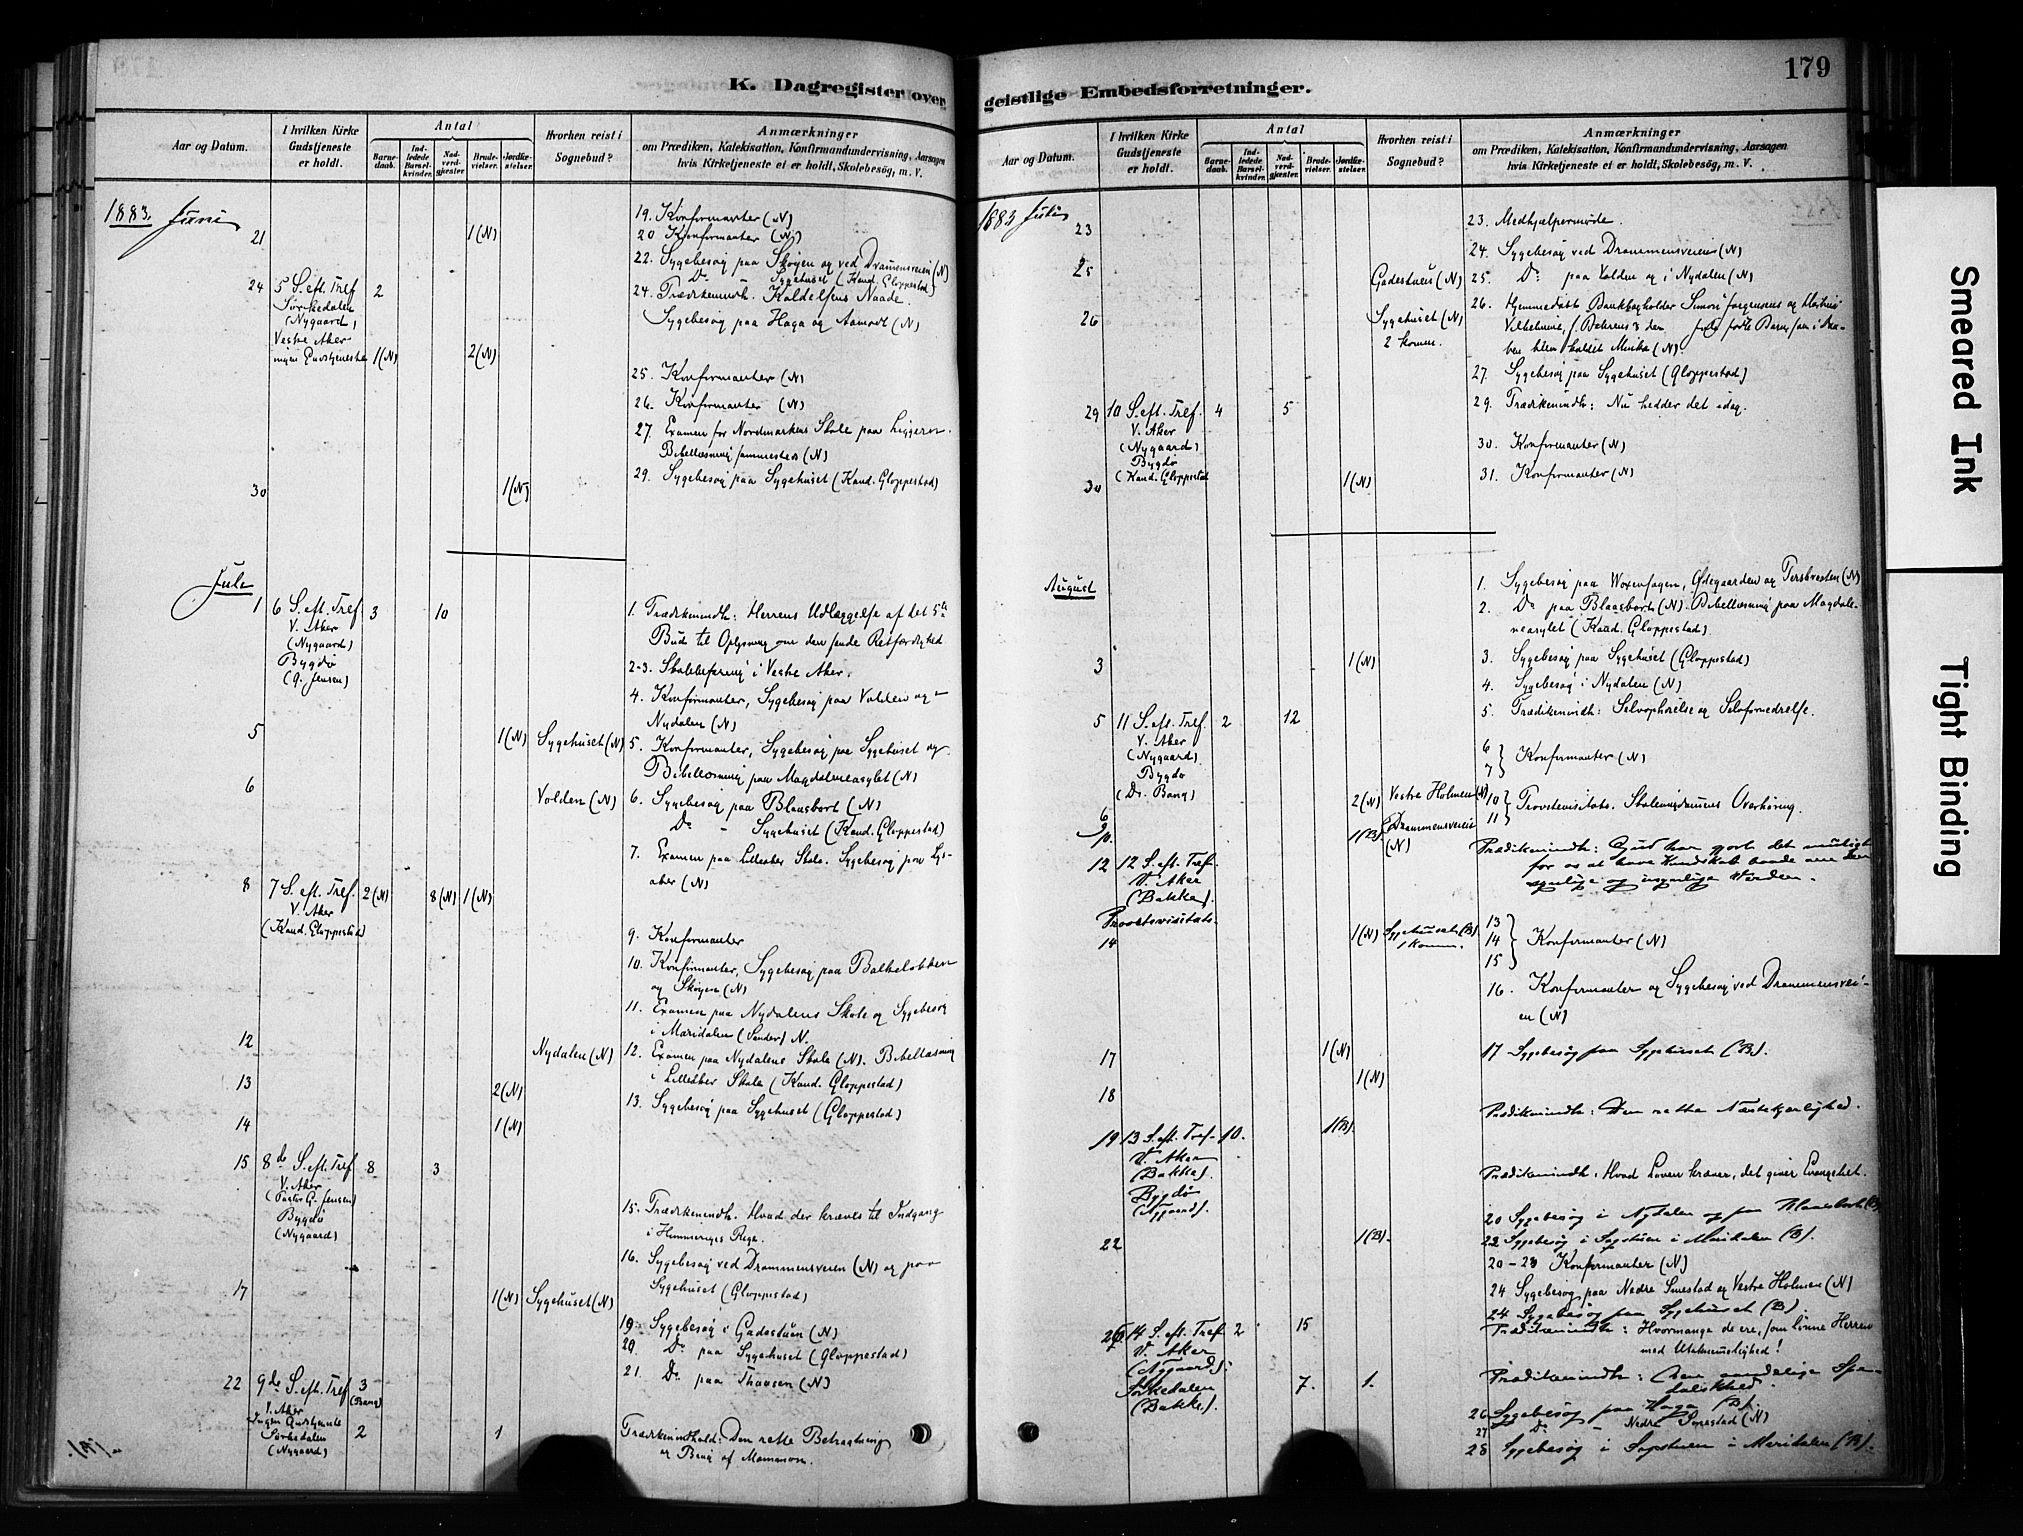 K. Dagregister over
Aar og Datum.
I hvilken Kirke Gudstjeneste er holdt.
Antal
Barne-daab.
Ind-ledede Barsel-kvinder.
Nad-verd-gjester.
Brude-vielser.
Jordfæ-stelser.
Hvorhen reist i Sognebud?
Anmærkninger
om Prædiken, Katekisation, Konfirmandundervisning, Aarsagen
hvis Kirketjeneste ei er holdt, Skolebesög, m. V.
1883. Juni
19. Konfirmanter (N)
21 1(N) 20 Konfirmanter (N)
22. Sygebesøg paa Skøyen og ved Drammensveien (N)
Do - Sygehuset (Kand. Gloppestad)
24 5 S. eft. Tref 2 24. Prædikenindh. Kaldelsens Naade.
Sørkedalen
(Nygaard) Sygebesøg paa Haga og Aamodt (N)
Vestre Aker
ingen Gudstjeneste 1(N) 2(N)
25. Konfirmanter (N)
26. Konfirmanter (N)
27. Examen for Nordmarkens Skole paa
Bibellæsning sammesteds (N)
29. Sygebesøg paa Sygehuset (Kand. Gloppestad)
30 1(N)
Juli
1 6 S. eft. Tref 3 10 1. Prædikenindh: Herrens Udlæggelse af det 5te
V. Aker
(Nygaard) Bud til Oplysning om den sande Retfærdighed
Bygdø
(G. Jensen) 2-3. i Vestre Aker.
4. Konfirmanter, Sygebesøg paa Volden og
Nydalen (N)
5 1(N) Sygehuset (N) 5. Konfirmanter, Sygebesøg paa Sygehuset og
Bibellæsning paa Magdaleneasylet (N)
6 Volden (N) 6. Sygebesøg paa Blaasbort (N)
Do - Sygehuset (Kand. Gloppestad)
7. Examen paa Lilleaker Skole. Sygebesøg paa Lys-
aker (N)
8 7 S. eft. Tref. 2(N) 8(N) 1(N)
V. Aker
(Kand. Gloppestad)
9. Konfirmanter
10. Konfirmanter, Sygebesøg paa Balkeløkken
og Skøyen (N)
11. Examen paa Nydalens Skole og Sygebesøg
i Maridalen (Sander) N.
12 Nydalen (N) 12. Examen paa Nydalens Skole (N). Bibellæsning
i Lilleaker Skole (Kand. Gloppestad)
13 2(N) 13. Sygebesøg paa Sygehuset (Gloppestad)
14 1(N)
15 8de S. eft. Tref 8 3
V. Aker
(Pastor G. Jensen)
Bygdø
(Nygaard)
15. Prædikenindh. Hvad der kræves til Indgang
i Himmeriges Rige.
16. Sygebesøg ved Drammensveien (N) og paa
Sygehuset (Gloppestad)
17 1(N) Sygehuset (N)
19 Sygebesøg i Gadestuen (N)
20. Do paa Sygehuset (Gloppestad)
21. Do paa Thaasen (N)
22 9de S. eft. Tref 3
(Bang)
V. Aker
Ingen Gudstjeneste
Sørkedalen 2 1 Prædikenindhold: Den rette Betragtning
(Nygaard) og Brug af Mammon.
179
geistlige Embedsforretninger.
Aar og Datum.
I hvilken Kirke Gudstjeneste er holdt.
Antal
Barne-daab.
Ind-ledede Barsel-kvinder.
Nad-verd-gjester.
Brude-vielser.
Jordfæ-stelser.
Hvorhen reist i Sognebud?
Anmærkninger
om Prædiken, Katekisation, Konfirmandundervisning, Aarsagen
hvis Kirketjeneste ei er holdt, Skolebesög, m. V.
1883 Juli
23 23. Medhjælpermøde.
24. Sygebesøg ved Drammensveien (N)
25 Gadestuen (N) 25. Do paa Volden og i Nydalen (N)
26 Sygehuset (N) 26. Hjemmedøbt Bankbogholder Simon Jørgensens og
2 komm. Vilhelmine, f. Behrens 3 den fødte Barn, som i Daa-
ben blev kaldet (N).
27. Sygebesøg paa Sygehuset (Gloppestad)
29 10 S. eft. Tref. 4 5 29. Prædikenindh: Nu hedder det idag.
V. Aker
(Nygaard) 30. Konfirmanter (N)
Bygdø
(Kand. Gloppestad
30 1(N) 31. Konfirmanter (N)
August
1. Sygebesøg paa Woxenkogen, Ødegaarden og (N)
2. Do paa Blaasbort (N). Bibellæsning paa Magdale-
neasylet (Kand. Gloppestad).
3 1(N) 3. Sygebesøg paa Sygehuset (Gloppestad)
4. Sygebesøg i Nydalen (N)
5 11 S. eft. Tref. 2 12 5. Prædikenindh: Selvophøielse og Selvfornedrelse.
V. Aker
(Nygaard)
Bygdø
(Dr. Bang)
6
7 } Konfirmanter (N)
6 2(N) Vestre Holmen (N) 10
11 } Provstevisitats. Skoleungdommens Overhøring.
9 1(B). Drammensveien
(N)
Prædikenindh: Gud har gjort det muligt
12 12 S. eft. Tref. for os at have Kundskab baade om den
V. Aker synlige og usynlige Verden.
(Bakke).
Provstevisitats.
14 1(N) Sygehuset (B)
1 komm.
13
14
15 } Konfirmanter (N)
16. Konfirmanter og Sygebesøg ved Drammensvei-
en (N)
17 1(N) 17 Sygebesøg paa Sygehuset (B).
1(N)
18
Prædikenindh: Den rette Næstekjærlighed.
19 13 S. eft. Tref. 10. 1(B).
V. Aker
(Bakke).
Bygdø
(Nygaard).
Prædikenindh: Hvad Loven kræver, det giver Evangeliet.
20 Sygebesøg i Nydalen og paa Blaasbort (B)
22 1(B). 22 Sygebesøg i Sagstuen i Maridalen (B).
20-23 Konfirmanter (N)
24 Sygebesøg paa Nedre Smestad og Vestre Holmen (N)
24 Sygebesøg paa Sygehuset (B).
26 14 S. eft. Tref 2 15 Prædikenindh: Hvormange de ere, som lønne Herren
V. Aker med Utaknemmelighed!
(Nygaard).
Sørkedalen 7. 1. Prædikenindh: Den aandelige Spe-
(Bakke). dalskhed.
26 Sygebesøg paa Haga (B).
27 Do - Nedre Smestad (N)
28 Sygebesøg i Sagstuen i Maridalen (B).
Smeared Ink
Tight Binding